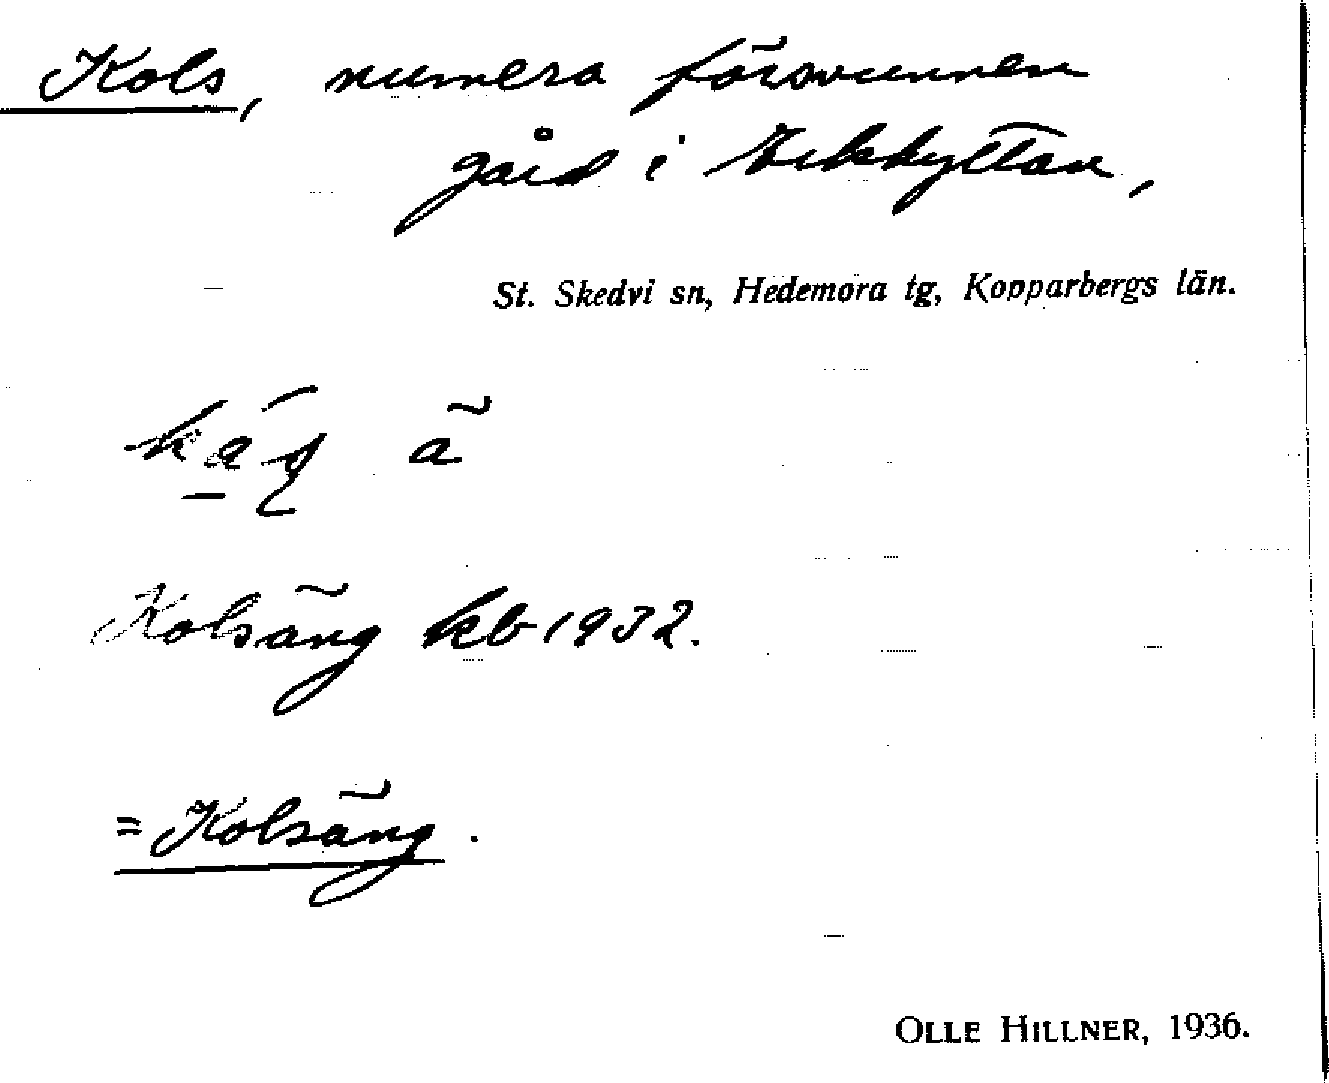 Kols, numera försvunnen
gård i
St. Skedvi sn, Hedemora tg, Kopparbergs län.
Kolsäng kb 1932.
= Kolsäng.
OLLE HILLNER, 1936.